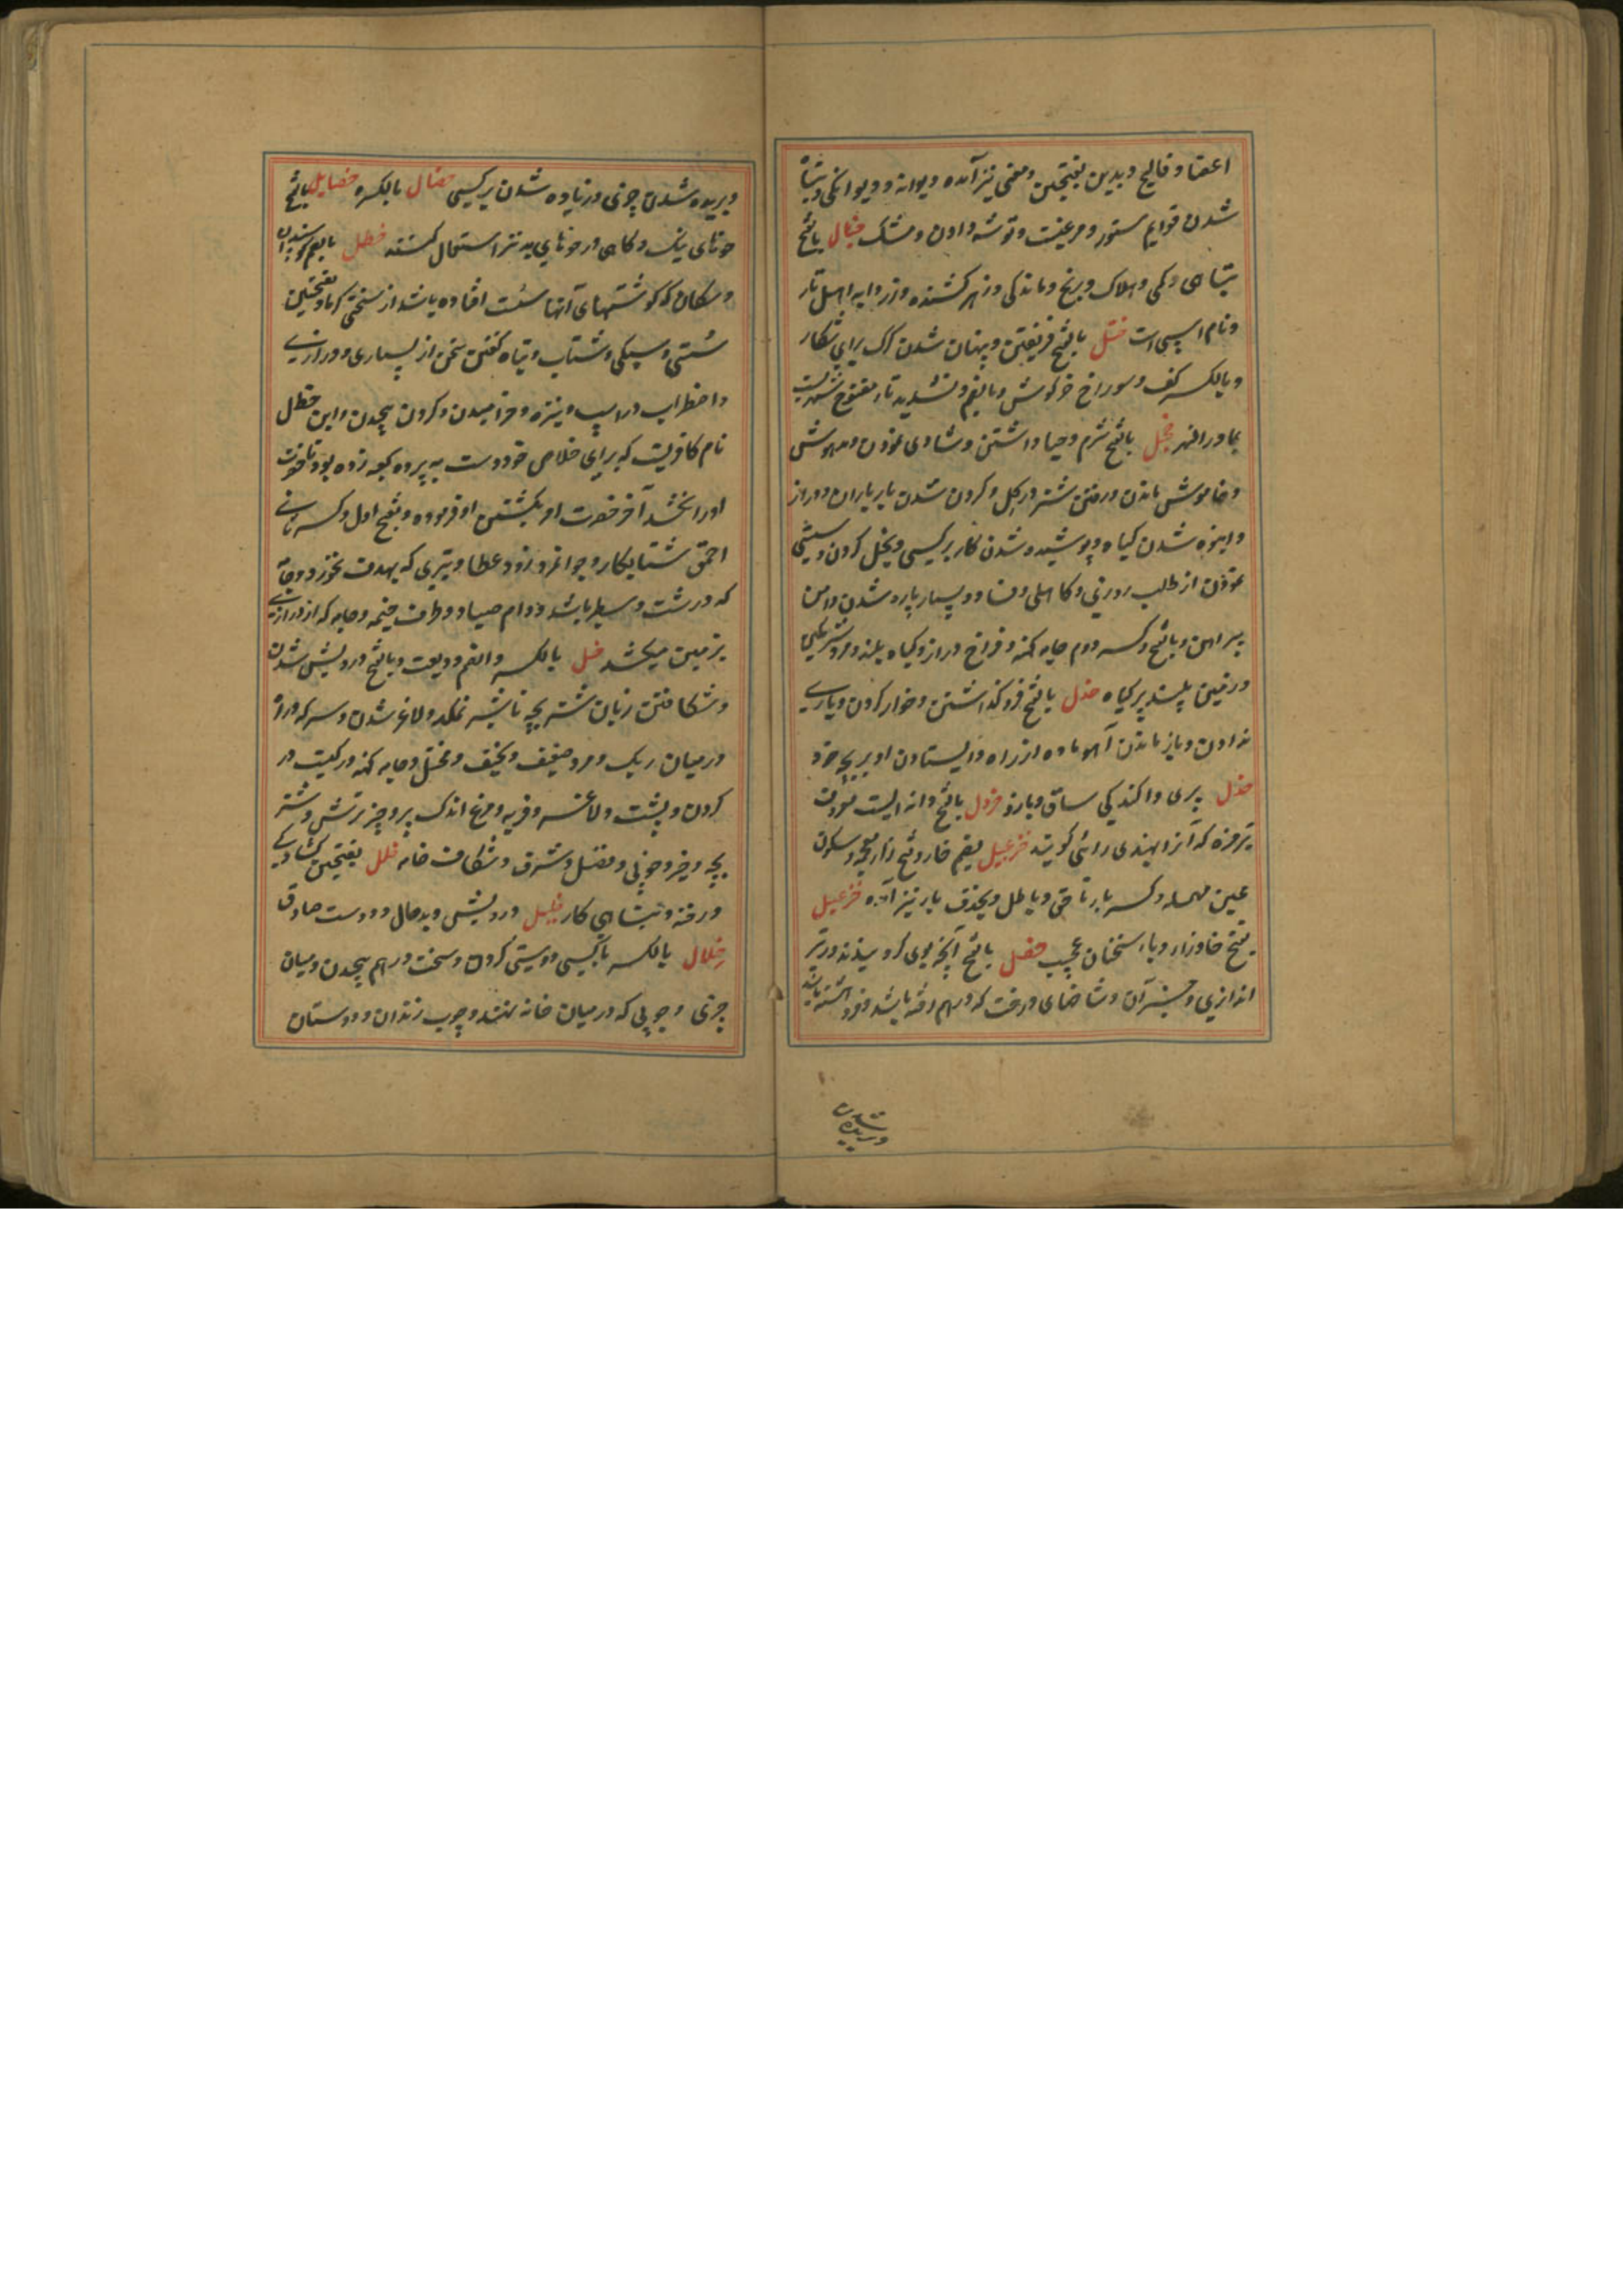 اعضا و فالج و بدین بفتحتین و معنی نیز آمده دیوانه و دیوانکی و تباه
شدن قوایم ستور و مرغیست و توشه دادن و مشک خبال بالفتح
تباهی و کمی و هلاک و رنج و ماندکی و زهر کشنده و زردابه اهل نار
و نام اسپی است ختل بالفتح فریفتن و پنهان شدن کرک برای شکار
و بالکسر کف و سوراخ خرکوش و بالضم و تشدید تاء مفتوح شهریست
بماوراالنهر خجل بالفتح شرم و حیا داشتن و شادی نمودن و مدهوش
و خاموش ماندن و رفتن شتر در کل و کردن شدن بار بر یاران و دراز
و انبوه شدن کیاه و پوشیده شدن کار بر کسی و بخل کردن و سستی
نمودن از طلب روزی و کاهلی و فساد و بسیار پاره شدن دامن
پیراهن و بالفتح و کسر دوم جامه کهنه و فراخ دراز و کیاه بلند و
و زمین پلید پر کیاه خذل بالفتح فرو کذاشتن و خوار کردن و یاری
ندادن و باز ماندن آهو ماده از راه و ایستادن او بر بچه خود
خدل پری و آکندکی ساق و بازو خردل بالفتح دانه ایست معروف
تیزمزه که آنرا بهندی رائی کویند خزعبیل بضم خا و فتح زاء معجمه و سکون
عین مهمله و کسر باء ناحق و باطل و بحذف یا نیز آمده خزعبیل
بفتح خا و زاء و باء سخنان عجیب خصل بالفتح آنچه بوی کرو بندند در تیر
اندازی و جز آن و شاخهای درخت که درهم رفته باشد و فروهشته باشد
بریده شدن
و بریده شدن چیزی و زیاده شدن بر کسی خصال بالکسر خصایل بالفتح
خوهای نیک و کاهی در خوهای بد نیز استعمال کنند خطل بالضم کوسفندان
و سکان که کوشتهای آنها سست افتاده باشد از سختی کرما و بفتحتین
سستی و سبکی و شتاب و تباه کفتن سخن از بسیاری و درازی
و اضطراب در اسپ و نیزه و خرامیدن و کردن پیچیدن و ابن خطل
نام کافریست که برای خلاص خود دست به پرده کعبه زده بود تا حضرت
او را بخشد آخر حضرت امر بکشتن او فرموده و بفتح اول و کسر ثانی
احمق شتابکار و جوانمرد زود عطا و تیری که بهدف نخورد و جامه
که درشت و سطبر باشد و دام صیاد و طرف خیمه و جامه که از درازی
بزمین میکشد خل بالکسر و الضم دوست و بالفتح درویش شدن
و شکافتن زبان شتر بچه تا شیر نمکد و لاغر شدن و سرکه و راه
در میان ریک و مرد ضعیف و نحیف و مختل و جامه کهنه و رکیست در
کردن و پشت و لاغر و فربه و مرغ اندک پر و چیز ترش و شتر
بچه و خیر و خوبی و فضل و شرف و شکاف خانه خلل بفتحتین کشادکی
و رخنه و تباهی کار خلیل درویش و بدحال و دوست صادق
خلال بالکسر با کسی دوستی کردن و سخت درهم پیچیدن و میان
چیزی و چوبی که در میان خانه نهند و چوب دندان و دوستان